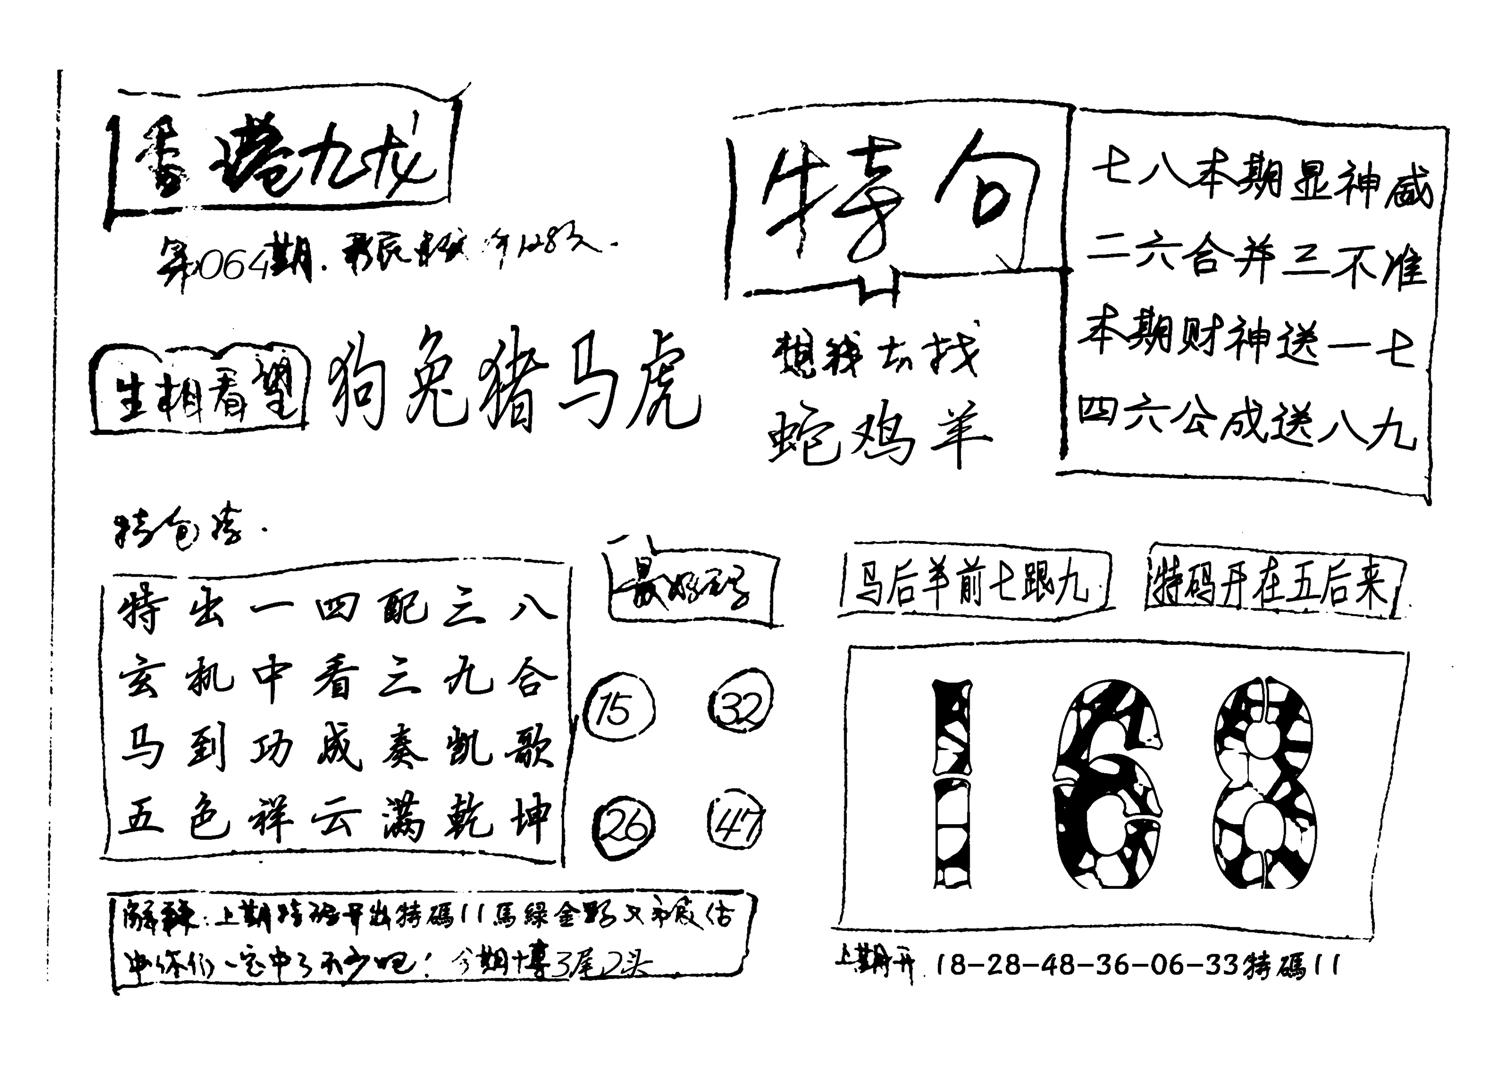 香港九龙
第064期.
生相看望
狗兔猪马虎
特句
想钱去找
蛇鸡羊
七八本期显神威
二六合并三不准
本期财神送一七
四六公成送八九
特出一四配三八
玄机中看三九合
马到功成奏凯歌
五色祥云满乾坤
最好码
15 32
26 47
马后羊前七跟九
特码开在五后来
168
解释:上期特码开出特碼11馬綠金野
你们一定中了不少吧! 今期博3尾2头
上期开 18-28-48-36-06-33特碼11